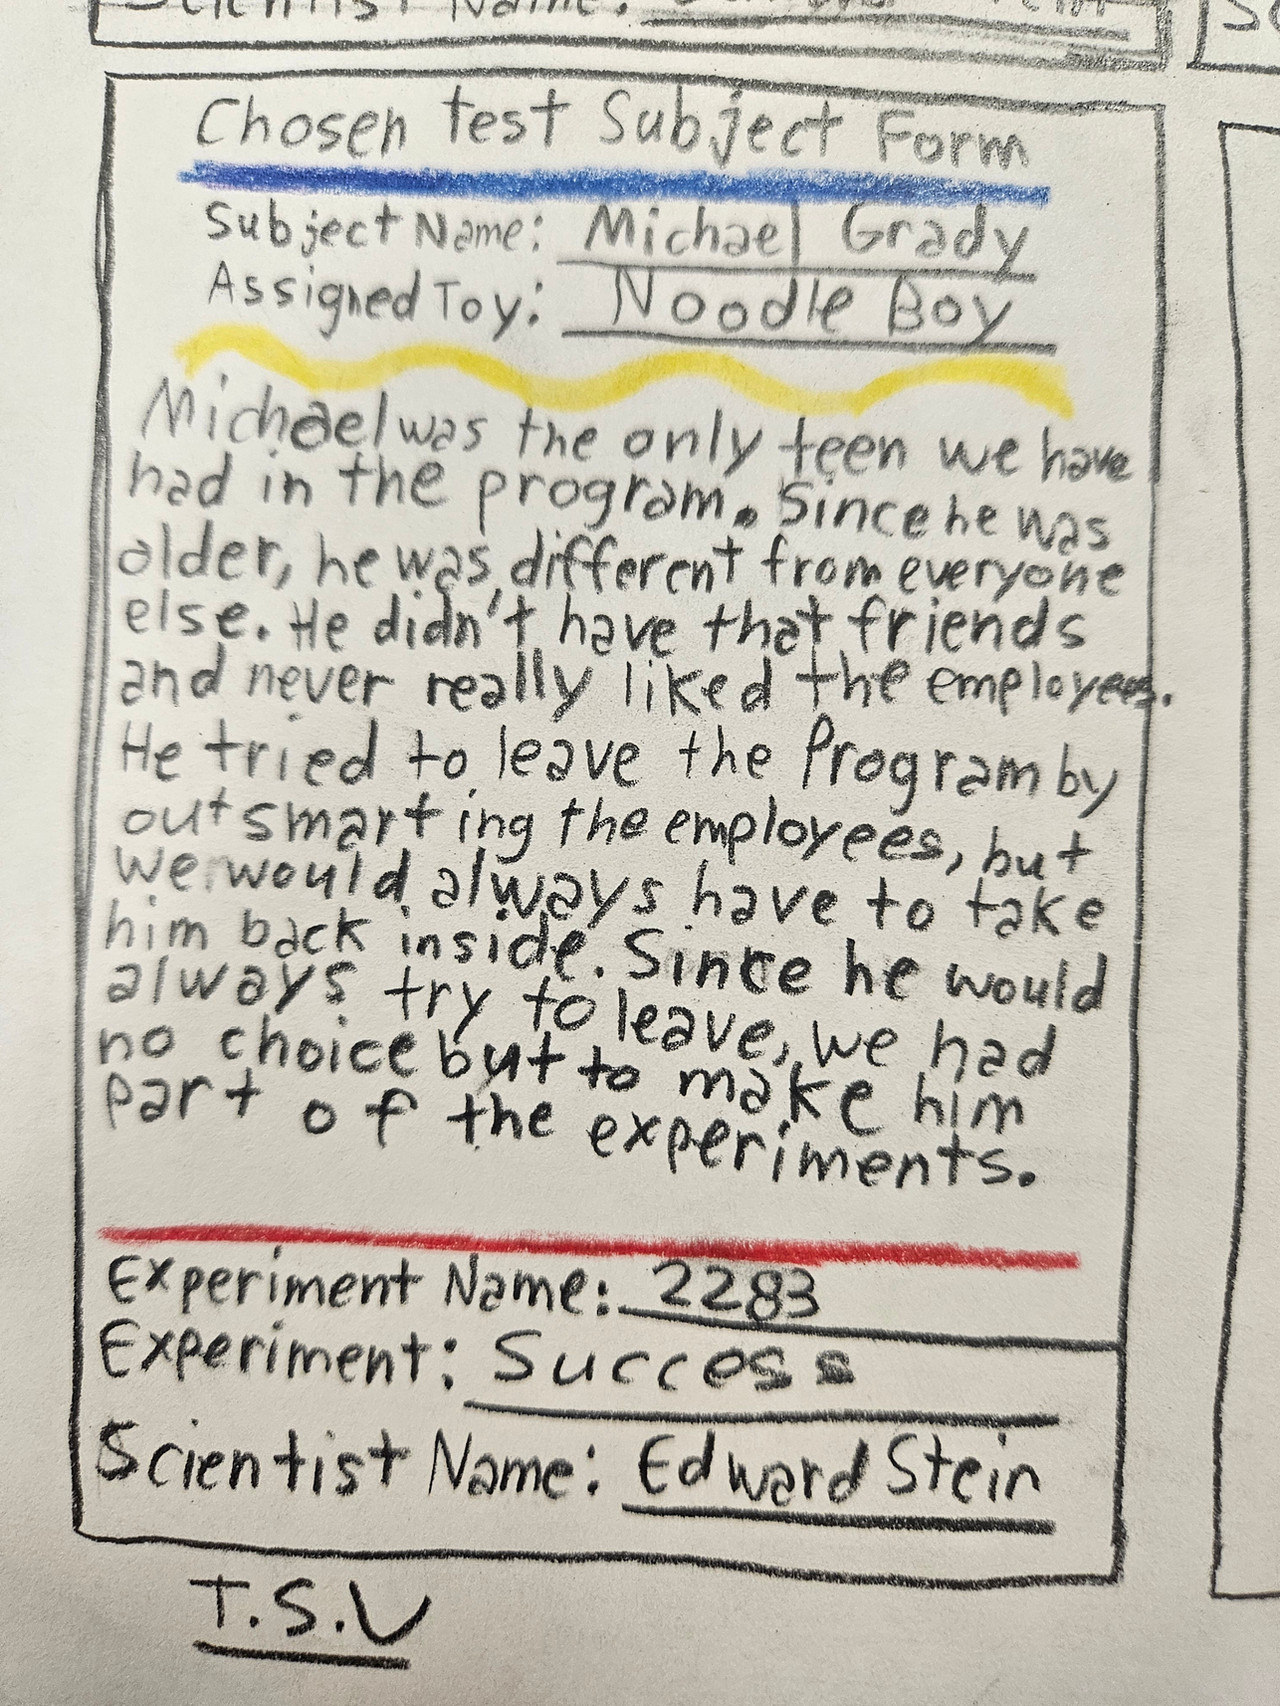 Scientist Name:
Chosen test Subject Form
Subject Name: Michael Grady
Assigned Toy: Noodle Boy
Michael was the only teen we have
had in the program. Since he was
older, he was different from everyone
else. He didn't have that friends
and never really liked the employees.
He tried to leave the Program by
outsmarting the employees, but
we would always have to take
him back inside. Since he would
always try to leave, we had
no choice but to make him
part of the experiments.
Experiment Name: 2283
Experiment: Success
Scientist Name: Edward Stein
T.S.V